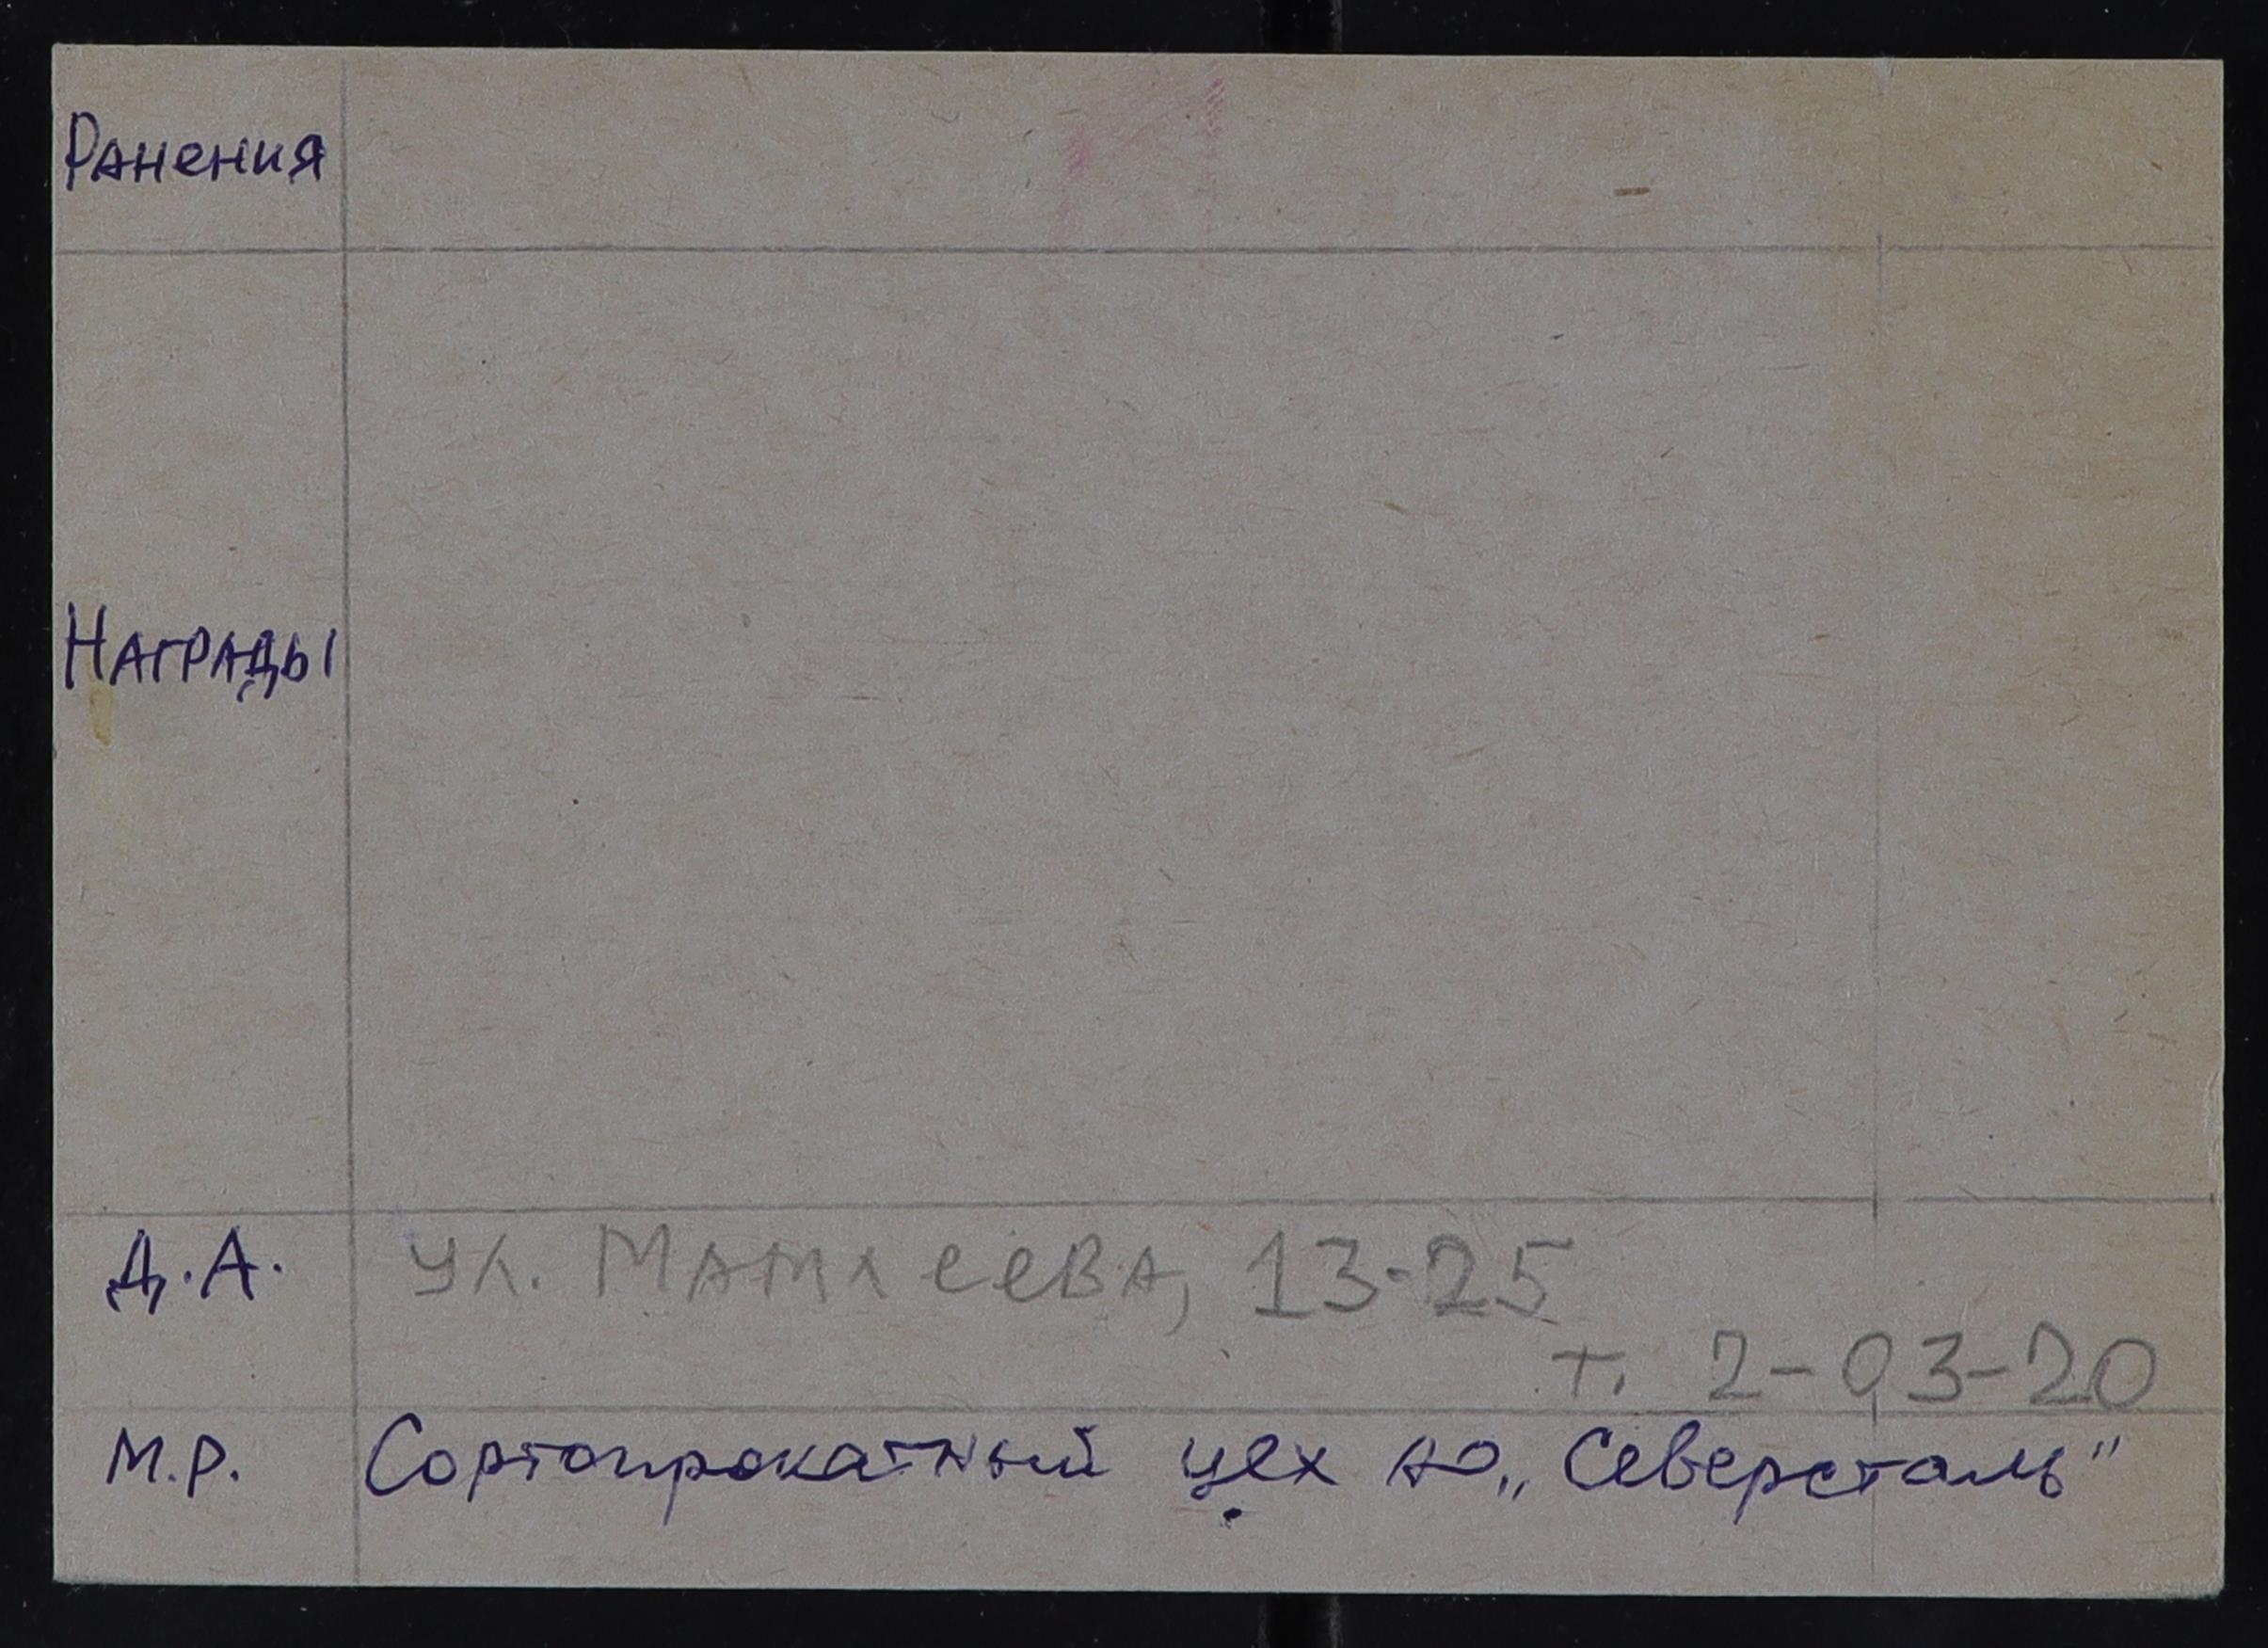 Ранения
Награды
Д.А. ул. Матлеева, 13-25
т. 2-03-20
М.Р. Сортопрокатный цех АО „Северсталь"